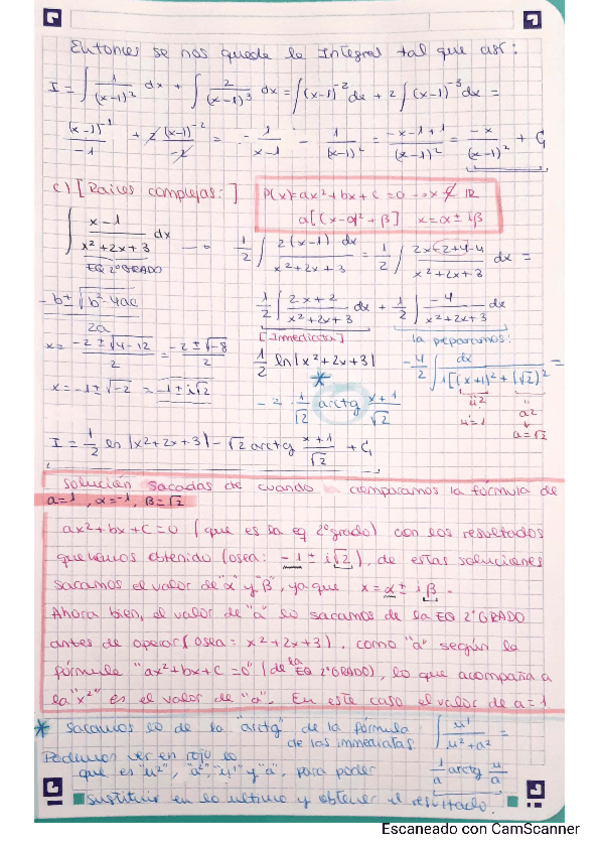 Entonces se nos queda la Integral tal que así:
I = ∫ 1/(x-1)² dx + ∫ 2/(x-1)³ dx = ∫(x-1)⁻² dx + 2∫(x-1)⁻³ dx =
(x-1)⁻¹/-1 + 2(x-1)⁻²/-2 = -1/(x-1) - 1/(x-1)² = (-x-1+1)/(x-1)² = -x/(x-1)² + C₁
c) [Raíces complejas:]
P(x) = ax² + bx + c = 0 → x ∉ ℝ
a[(x-α)² + β] x = α ± iβ
∫ (x-1)/(x²+2x+3) dx → 1/2 ∫ 2(x-1) dx/(x²+2x+3) = 1/2 ∫ (2x-2+4-4)/(x²+2x+3) dx =
EQ 2º GRADO
1/2 ∫ (2x+2)/(x²+2x+3) dx + 1/2 ∫ -4/(x²+2x+3) dx
-b±√(b²-4ac)/2a
[Inmediata]
la preparamos:
x = (-2±√(4-12))/2 = (-2±√-8)/2
1/2 ln|x²+2x+3|
-4/2 ∫ dx/1[(x+1)²+(√2)²] =
x = -1±√-2 = -1±i√2
*
-2 · 1/√2 arctg (x+1)/√2
u²
u'=1
a²
a=√2
I = 1/2 ln|x²+2x+3| - √2 arctg (x+1)/√2 + C₁
Solución sacadas de cuando comparamos la fórmula de
a=1, α=-1, β=√2
ax²+bx+c=0 (que es la eq 2ºgrado) con los resultados
que hemos obtenido (osea: -1±i√2), de estas soluciones
sacamos el valor de "α" y "β", ya que x=α±iβ.
Ahora bien, el valor de "a" lo sacamos de la EQ 2ºGRADO
antes de operar (osea: x²+2x+3), como "a" según la
fórmula "ax²+bx+c=0" (de la EQ 2ºGRADO), lo que acompaña a
la "x²" es el valor de "a". En este caso el valor de a=1
* Sacamos lo de la "arctg" de la fórmula
de las inmediatas
∫ u'/(u²+a²) =
1/a arctg u/a
Podemos ver en rojo lo
que es "u²", "a²", "u'" y "a", para poder
sustituir en lo último y obtener el resultado.
Escaneado con CamScanner